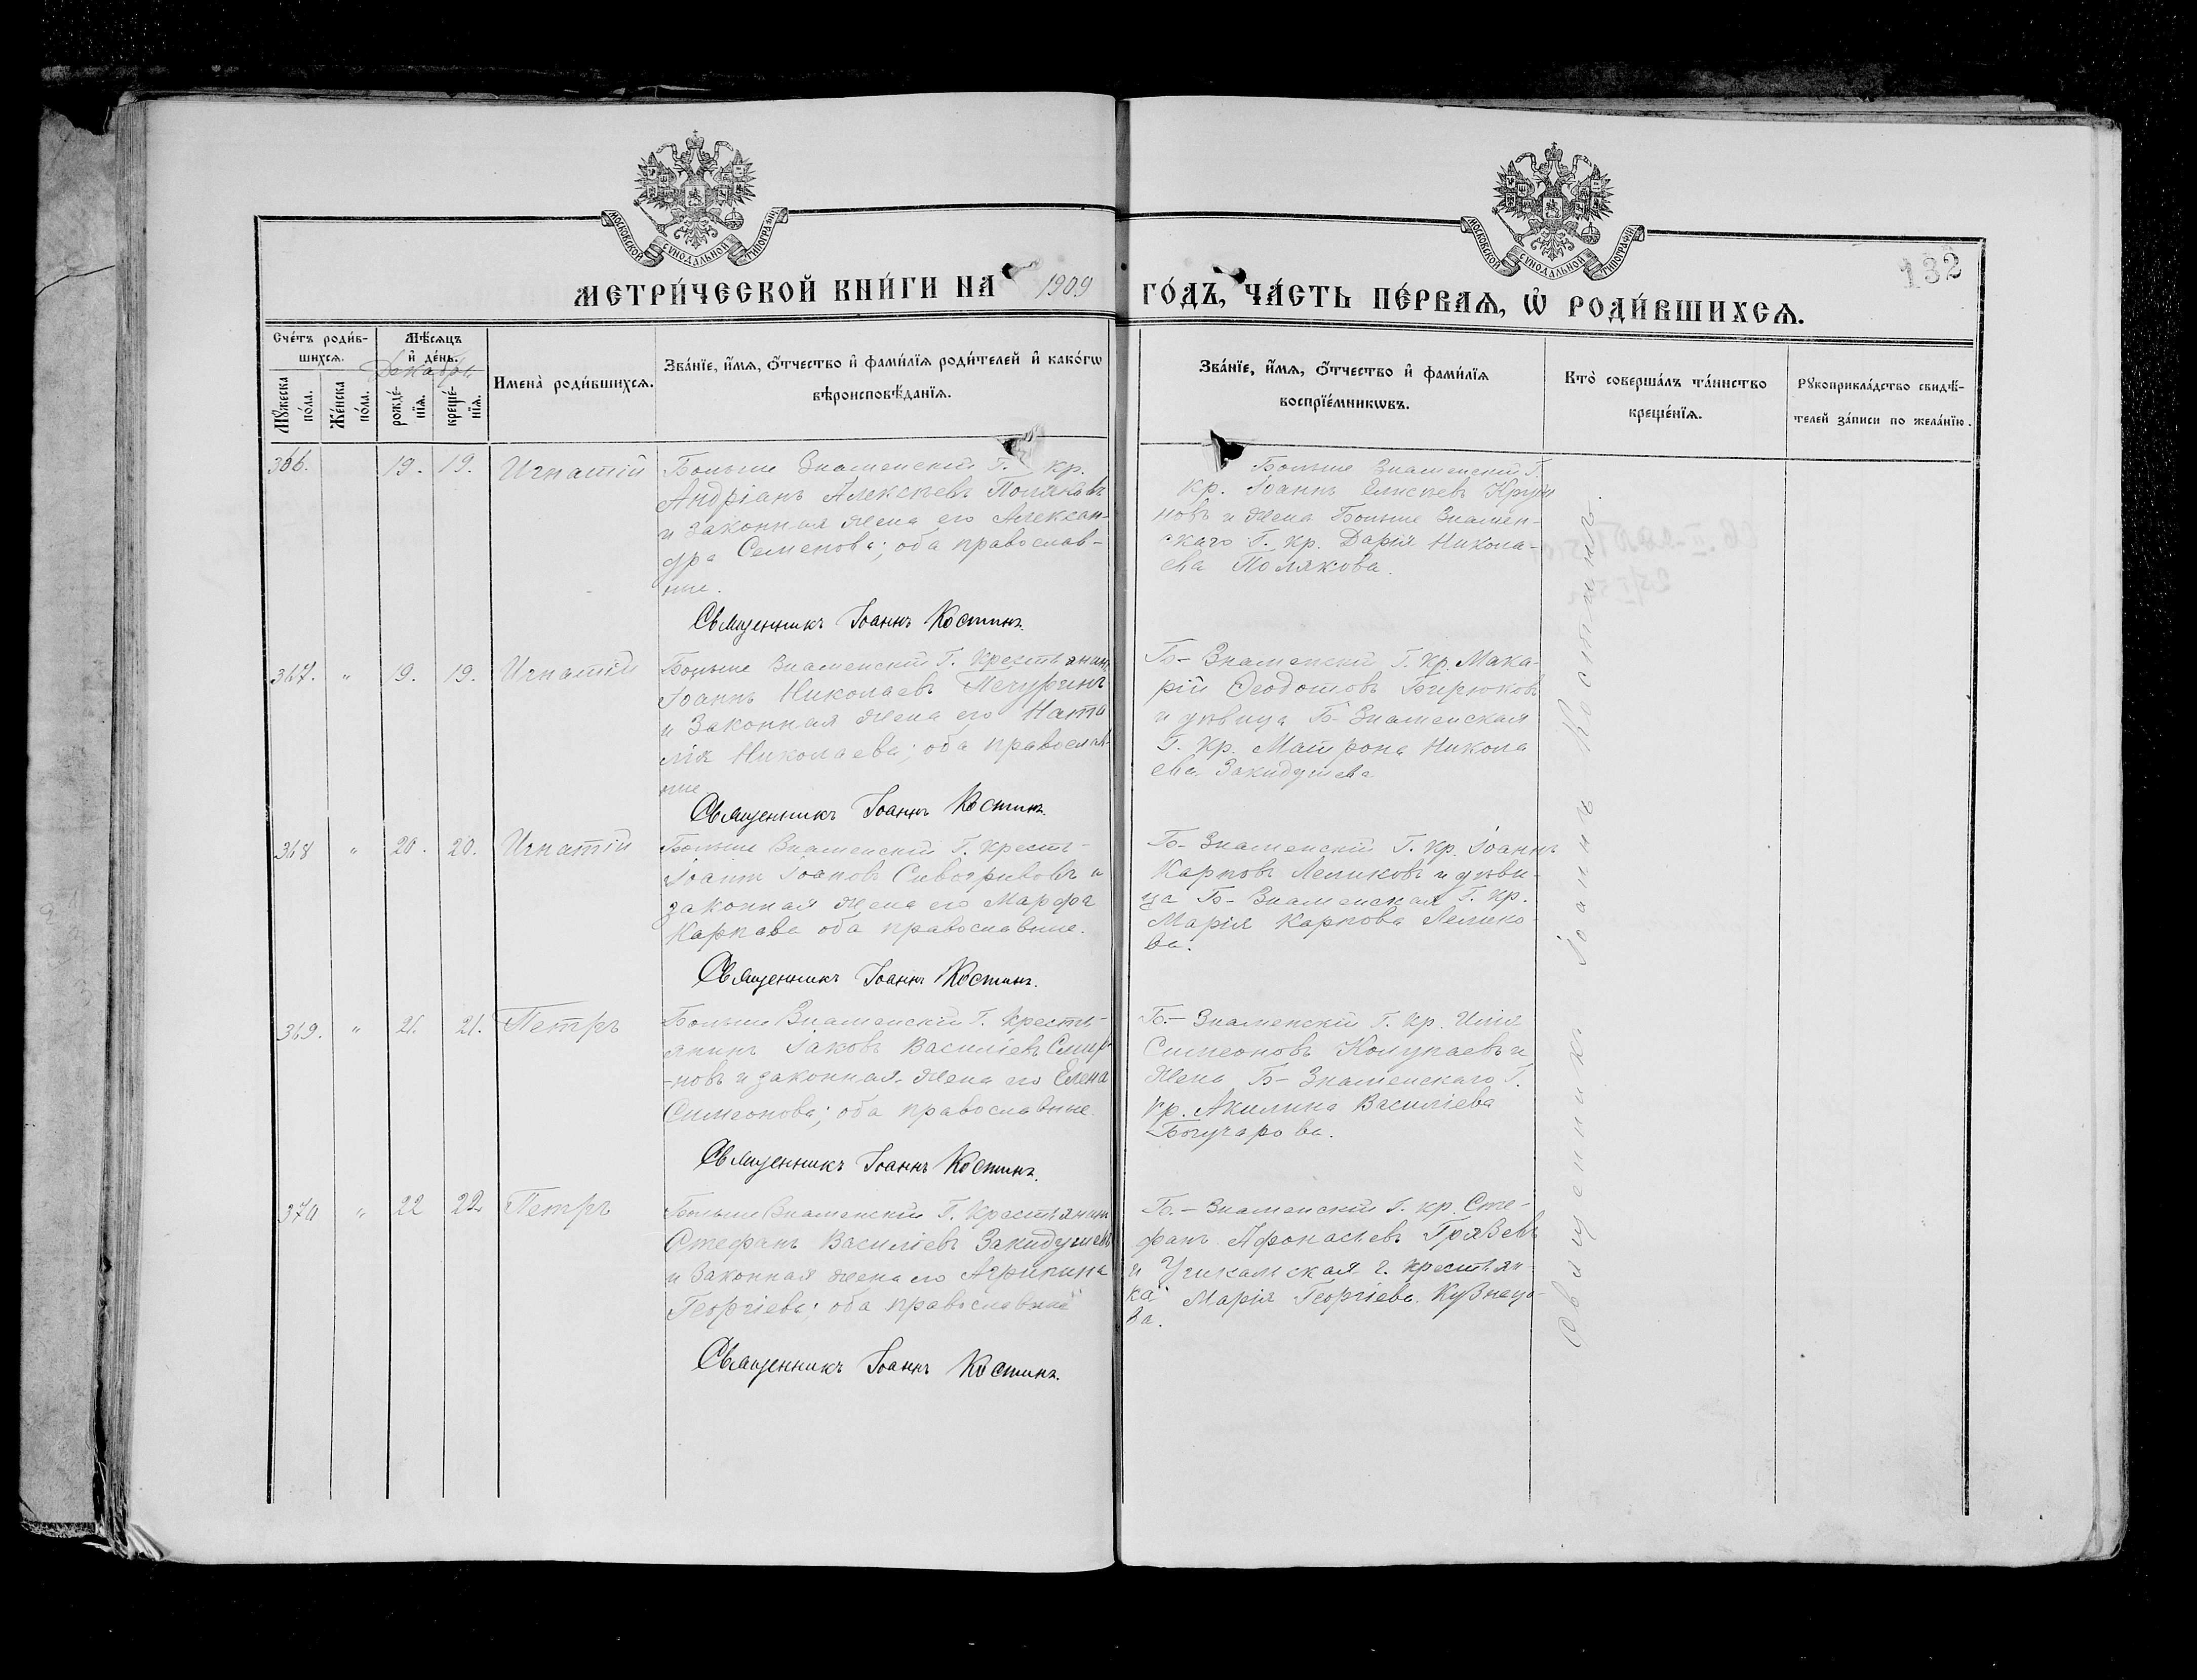 МОСКОВСКОЙ СѴНОДАЛЬНОЙ ТИПОГРАФІИ
МОСКОВСКОЙ СѴНОДАЛЬНОЙ ТИПОГРАФІИ
132
МЕТРИ́ЧЕСКОЙ КНИ́ГИ НА 1909 ГО́ДЪ, ЧА́СТЬ ПЕ́РВАѦ, Ѽ РОДИ́ВШИХСѦ.
Сче́тъ роди́в-
шихсѧ.
Мꙋ́жеска по́ла.
Же́нска по́ла.
Мѣ́сѧцъ
и҆ де́нь.
Декабрь
рожде́-
нїѧ.
креще́-
нїѧ.
Имена̀ роди́вшихсѧ.
Зва́нїе, и҆́мѧ, ѻ҆́тчество и҆ фами́лїѧ роди́телей и҆ како́гѡ
вѣроисповѣ́данїѧ.
Зва́нїе, и҆́мѧ, ѻ҆́тчество и҆ фами́лїѧ
воспрїе́мникѡвъ.
Кто̀ соверша́лъ та́инство
креще́нїѧ.
Рꙋкоприкла́дство свидѣ́-
телей за́писи по жела́нїю.
366. 19. 19. Игнатій
Больше Знаменскій Г. кр.
Андріанъ Алексѣевъ Поляковъ
и законная жена его Алексан-
дра Семенова; оба православ-
ные.
Священникъ Іоаннъ Костинъ.
Больше Знаменскій Г.
кр. Іоаннъ Елисѣевъ
новъ и жена Больше Знамен-
скаго Г. кр. Дарія Никола-
ева Полякова.
367. " 19. 19. Игнатій
Больше Знаменскій Г. Крестьянинъ
Іоаннъ Николаевъ Печуринъ
и Законная жена его Ната
лія Николаева; оба православ-
ные
Священникъ Іоаннъ Костинъ.
Б- Знаменскій Г. Кр. Мака-
рій Ѳеодотовъ Бирюковъ
и дѣвица Б- Знаменская
Г. Кр. Матрона Никола
ева Закидушева
368 " 20. 20. Игнатій
Больше Знаменскій Г. крестъ-
Іоаннъ Іоановъ Сивогривовъ и
законная жена его Марфа
Карпова оба православные.
Священникъ Іоаннъ Костинъ.
Б- Знаменскій Г. Кр. Іоаннъ
Карповъ Лепиковъ и дѣви-
ца Б- Знаменская Г. кр.
Марія Карпова Лепико-
ва.
369. " 21. 21. Петръ
Больше Знаменскій Г. Кресть-
янинъ Іаковъ Василіевъ Смир-
-новъ и законная жена его Елена
Симеонова; оба православные.
Священникъ Іоаннъ Костинъ.
Б.- Знаменскій Г. Кр. Илія
Симеоновъ Колупаевъ и
Жена Б- Знаменскаго Г.
Кр. Акилина Василіева
Богучарова.
370 " 22 22 Петръ
Больше Знаменскій Г. Крестьянинъ
Стефанъ Василіевъ Закидушевъ
и Законная жена его Агрипина
Георгіева; оба православные
Священникъ Іоаннъ Костинъ.
Б.- Знаменскій Г. кр. Сте-
фанъ Афонасьевъ
и г. крестьян-
ка Марія Георгіева Кузнецо-
ва.
Священникъ Іоаннъ Костинъ.